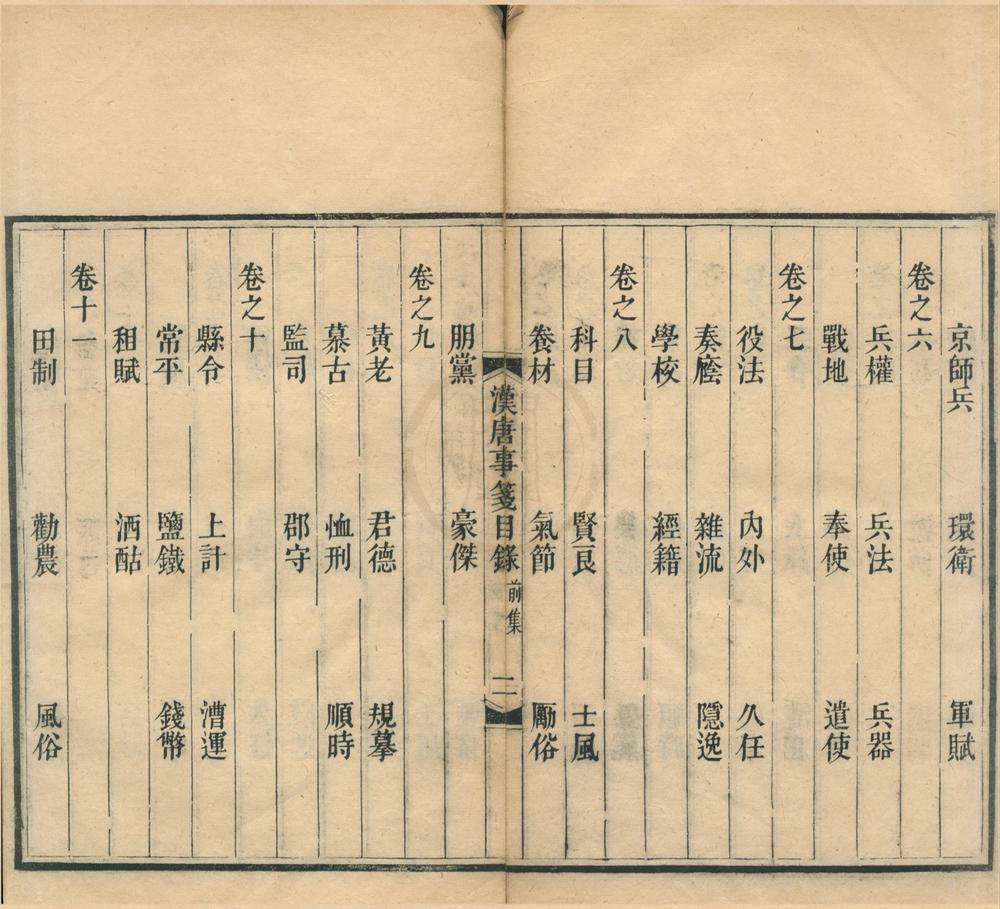 京師兵 環衛 軍賦
卷之六
兵權 兵法 兵器
戰地 奉使 遣使
卷之七
役法 內外 久任
奏廕 雜流 隱逸
學校 經籍
卷之八
科目 賢良 士風
養材 氣節 勵俗
漢唐事箋目錄 前集 二
朋黨 豪傑
卷之九
黃老 君德 規摹
慕古 恤刑 順時
監司 郡守
卷之十
縣令 上計 漕運
常平 鹽鐵 錢幣
租賦 酒酤
卷十一
田制 勸農 風俗